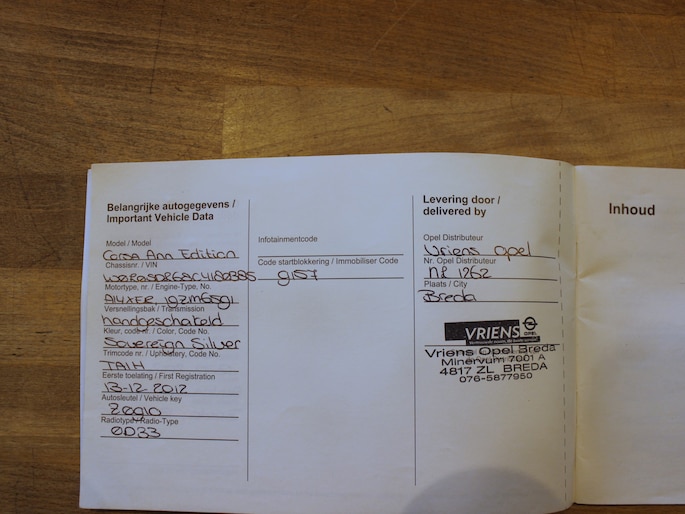 Belangrijke autogegevens /
Important Vehicle Data
Model / Model
Corsa Ann Edition
Chassisnr. / VIN
Motortype, nr. / Engine-Type, No.
A14XER,
Versnellingsbak / Transmission
handgeschakeld
Kleur, code nr. / Color, Code No.
Sovereign Silver
Trimcode nr. / Upholstery, Code No.
TAIH
Eerste toelating / First Registration
13-12-2012
Autosleutel / Vehicle key
Radiotype / Radio-Type
0D33
Infotainmentcode
Code startblokkering / Immobiliser Code
9157
Levering door /
delivered by
Opel Distributeur
Vriens Opel
Nr. Opel Distributeur
NL 1262
Plaats / City
Breda
VRIENS
OPEL
Vriens Opel Breda
Minervum 7001 A
4817 ZL BREDA
076-5877950
Inhoud